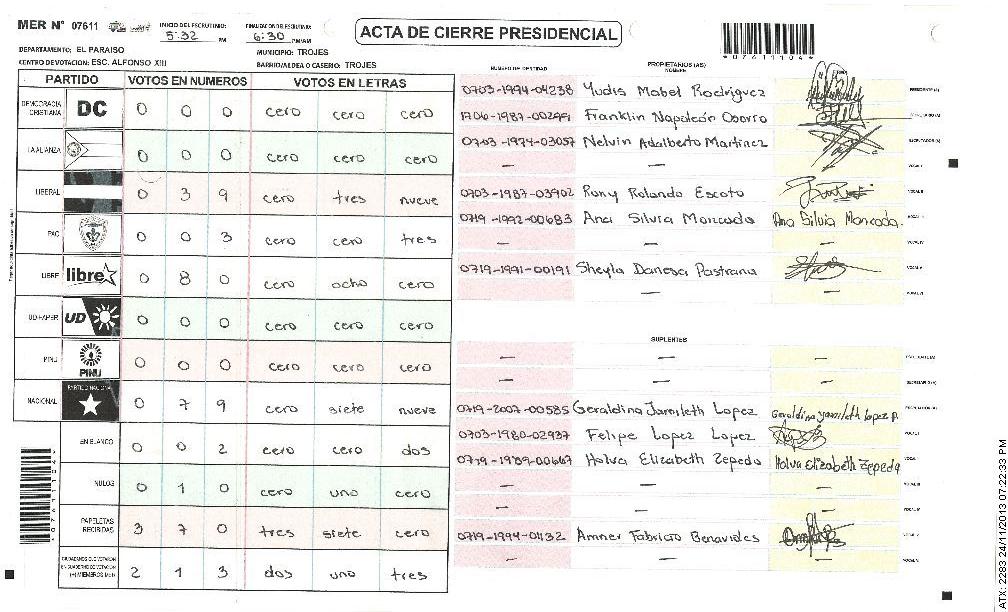 MER N° 07611 INICIO DEL ESCRUTINIO: 5:32 PM FINALIZACION DEL ESCRUTINIO: 6:30 PM/AM
ACTA DE CIERRE PRESIDENCIAL
*07611104*
DEPARTAMENTO: EL PARAISO MUNICIPIO: TROJES
CENTRO DE VOTACION: ESC. ALFONSO XIII BARRIO/ALDEA O CASERIO: TROJES
PARTIDO VOTOS EN NUMEROS VOTOS EN LETRAS
DEMOCRACIA CRISTIANA DC 0 0 0 cero cero cero
LA ALIANZA 0 0 0 cero cero cero
LIBERAL 0 3 9 cero tres nueve
PAC 0 0 3 cero cero tres
LIBRE libre 0 8 0 cero ocho cero
UD-FAPER UD 0 0 0 cero cero cero
PINU PINU 0 0 0 cero cero cero
NACIONAL PARTIDO NACIONAL 0 7 9 cero siete nueve
EN BLANCO 0 0 2 cero cero dos
NULOS 0 1 0 cero uno cero
PAPELETAS RECIBIDAS 3 7 0 tres siete cero
CIUDADANOS QUE VOTARON EN CUADERNO DE VOTACION (+) MIEMBROS MER 2 1 3 dos uno tres
NUMERO DE IDENTIDAD PROPIETARIOS (AS) NOMBRE
0703-1994-04238 Yudis Mabel Rodriguez PRESIDENTE (A)
1706-1987-00299 Franklin Napoleón Osorro SECRETARIO (A)
0703-1974-03057 Nelvin Adalberto Martinez ESCRUTADOR (A)
— — VOCAL I
0703-1987-03902 Rony Rolando Escoto VOCAL II
0719-1992-00683 Ana Silvia Moncada Ana Silvia Moncada. VOCAL III
— — — VOCAL IV
0719-1991-00191 Sheyla Danesa Pastrana VOCAL V
— — VOCAL VI
SUPLENTES
— — — PRESIDENTE (A)
— — — SECRETARIO (A)
0719-2007-00585 Geraldina Jamileth Lopez Geraldina yamileth lopez P. ESCRUTADOR (A)
0703-1980-02937 Felipe Lopez Lopez VOCAL I
0719-1989-00667 Holva Elizabeth Zepeda Holva Elizabeth Zepeda VOCAL II
— — — VOCAL III
— — VOCAL IV
0719-1994-01132 Amner Fabricio Benavides VOCAL V
— — — VOCAL VI
*07611104*
ATX: 2283 24/11/2013 07:22:33 PM